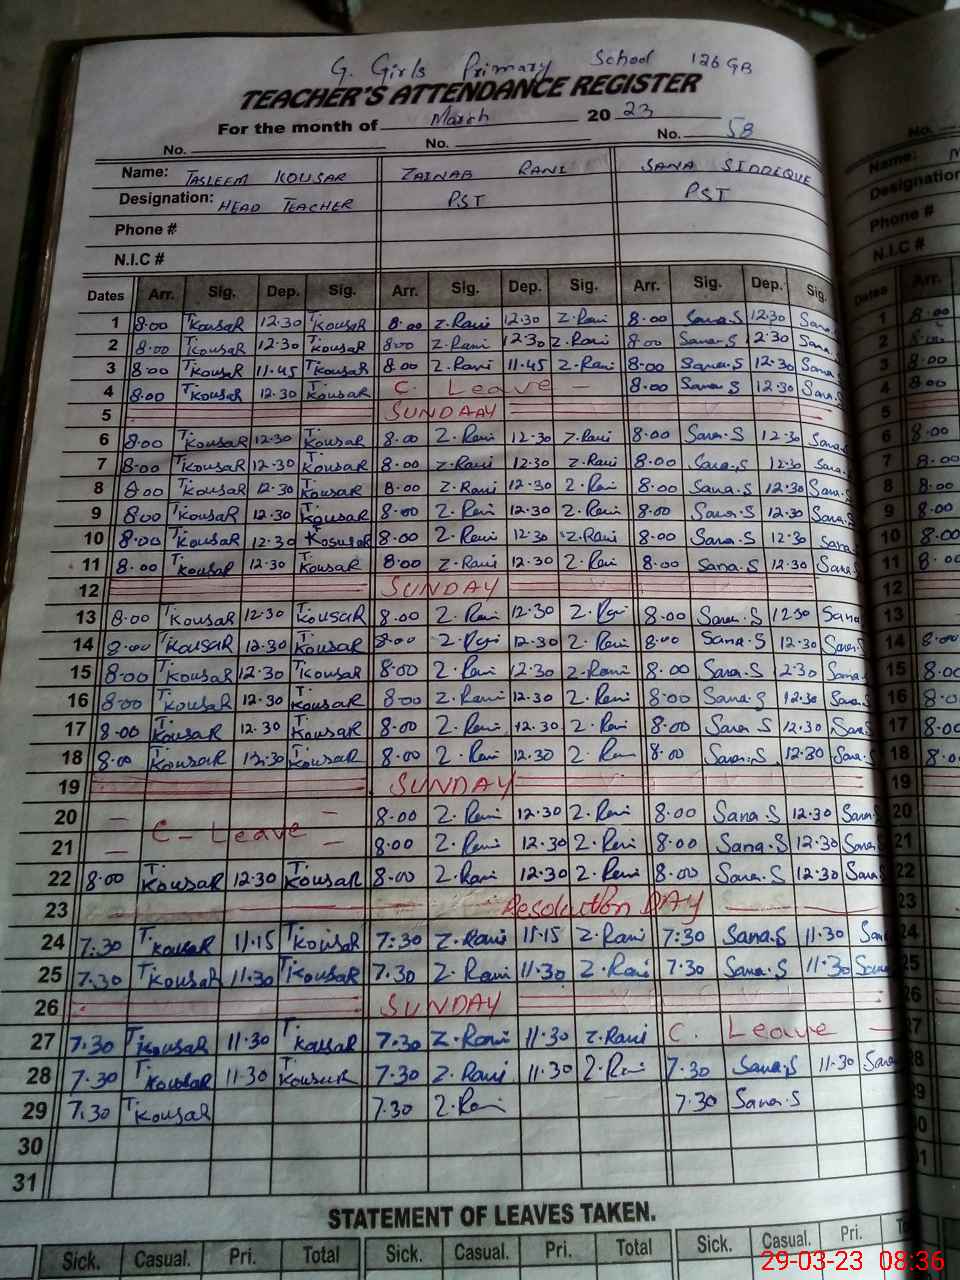 G. Girls Primary School 126 GB
TEACHER'S ATTENDANCE REGISTER
For the month of March 2023
No. No. No. 58
Name: TASLEEM KOUSAR ZAINAB RANI SANA SIDDEQUE
Designation: HEAD TEACHER PST PST
Phone #
N.I.C #
Dates Arr. Sig. Dep. Sig. Arr. Sig. Dep. Sig. Arr. Sig. Dep. Sig.
1 8:00 T.KousaR 12.30 T.KousaR 8.00 Z.Rani 12.30 Z.Rani 8.00 Sana.S 12.30 Sana.
2 8:00 T.KousaR 12.30 T.KousaR 8:00 Z.Rani 12.30 Z.Rani 8.00 Sana.S 12.30 Sana.
3 8:00 T.KousaR 11.45 T.KousaR 8.00 Z.Rani 11.45 Z.Rani 8.00 Sana.S 12.30 Sana.
4 8.00 T.KousaR 12.30 T.KousaR C. Leave - 8.00 Sana.S 12.30 Sana.
5 SUNDAAY
6 8:00 T.KousaR 12.30 T.KousaR 8.00 Z.Rani 12.30 Z.Rani 8.00 Sana.S 12.30 Sana.S
7 8:00 T.KousaR 12.30 T.KousaR 8.00 Z.Rani 12.30 Z.Rani 8.00 Sana.S 12.30 Sana.
8 8:00 T.KousaR 12.30 T.KousaR 8.00 Z.Rani 12.30 Z.Rani 8.00 Sana.S 12.30 Sana.S
9 8:00 T.KousaR 12.30 T.KousaR 8.00 Z.Rani 12.30 Z.Rani 8.00 Sana.S 12.30 Sana.S
10 8.00 T.KousaR 12.30 T.KosusaR 8.00 Z.Rani 12.30 Z.Rani 8.00 Sana.S 12.30 Sana.S
11 8.00 T.KousaR 12.30 T.KousaR 8:00 Z.Rani 12.30 Z.Rani 8.00 Sana.S 12.30 Sana.S
12 SUNDAY
13 8.00 T.KousaR 12.30 T.KousaR 8.00 Z.Rani 12.30 Z.Rani 8.00 Sana.S 12.30 Sana
14 8.00 T.KousaR 12.30 T.KousaR 8.00 Z.Rani 12.30 Z.Rani 8.00 Sana.S 12.30 Sana.S
15 8:00 T.KousaR 12.30 T.KousaR 8:00 Z.Rani 12.30 Z.Rani 8.00 Sana.S 12.30 Sana.
16 8:00 T.KousaR 12.30 T.KousaR 8.00 Z.Rani 12.30 Z.Rani 8.00 Sana.S 12.30 Sana.
17 8.00 T.KousaR 12.30 T.KousaR 8.00 Z.Rani 12.30 Z.Rani 8.00 Sana.S 12.30 Sana.
18 8.00 T.KousaR 12.30 T.KousaR 8.00 Z.Rani 12.30 Z.Rani 8.00 Sana.S 12.30 Sana.S
19 SUNDAY
20 8.00 Z.Rani 12.30 Z.Rani 8.00 Sana.S 12.30 Sana.S
C - Leave
21 8.00 Z.Rani 12.30 Z.Rani 8.00 Sana.S 12.30 Sana.
22 8.00 T.KousaR 12.30 T.KousaR 8.00 Z.Rani 12.30 Z.Rani 8.00 Sana.S 12.30 Sana.S
23 Resolution DAY
24 7:30 T.KousaR 11.15 T.KousaR 7:30 Z.Rani 11.15 Z.Rani 7:30 Sana.S 11.30 San
25 7.30 T.KousaR 11.30 T.KousaR 7.30 Z.Rani 11.30 Z.Rani 7.30 Sana.S 11.30 Sana
26 SUNDAY
27 7.30 T.KousaR 11.30 T.KousaR 7.30 Z.Rani 11.30 Z.Rani C. Leave -
28 7.30 T.KousaR 11.30 KousaR 7.30 Z.Rani 11.30 Z.Rani 7.30 Sana.S 11.30 Sana
29 7.30 T.KousaR 7.30 Z.Rani 7.30 Sana.S
30
31
STATEMENT OF LEAVES TAKEN.
Sick. Casual. Pri. Total Sick. Casual. Pri. Total Sick. Casual. Pri.
29-03-23 08:36